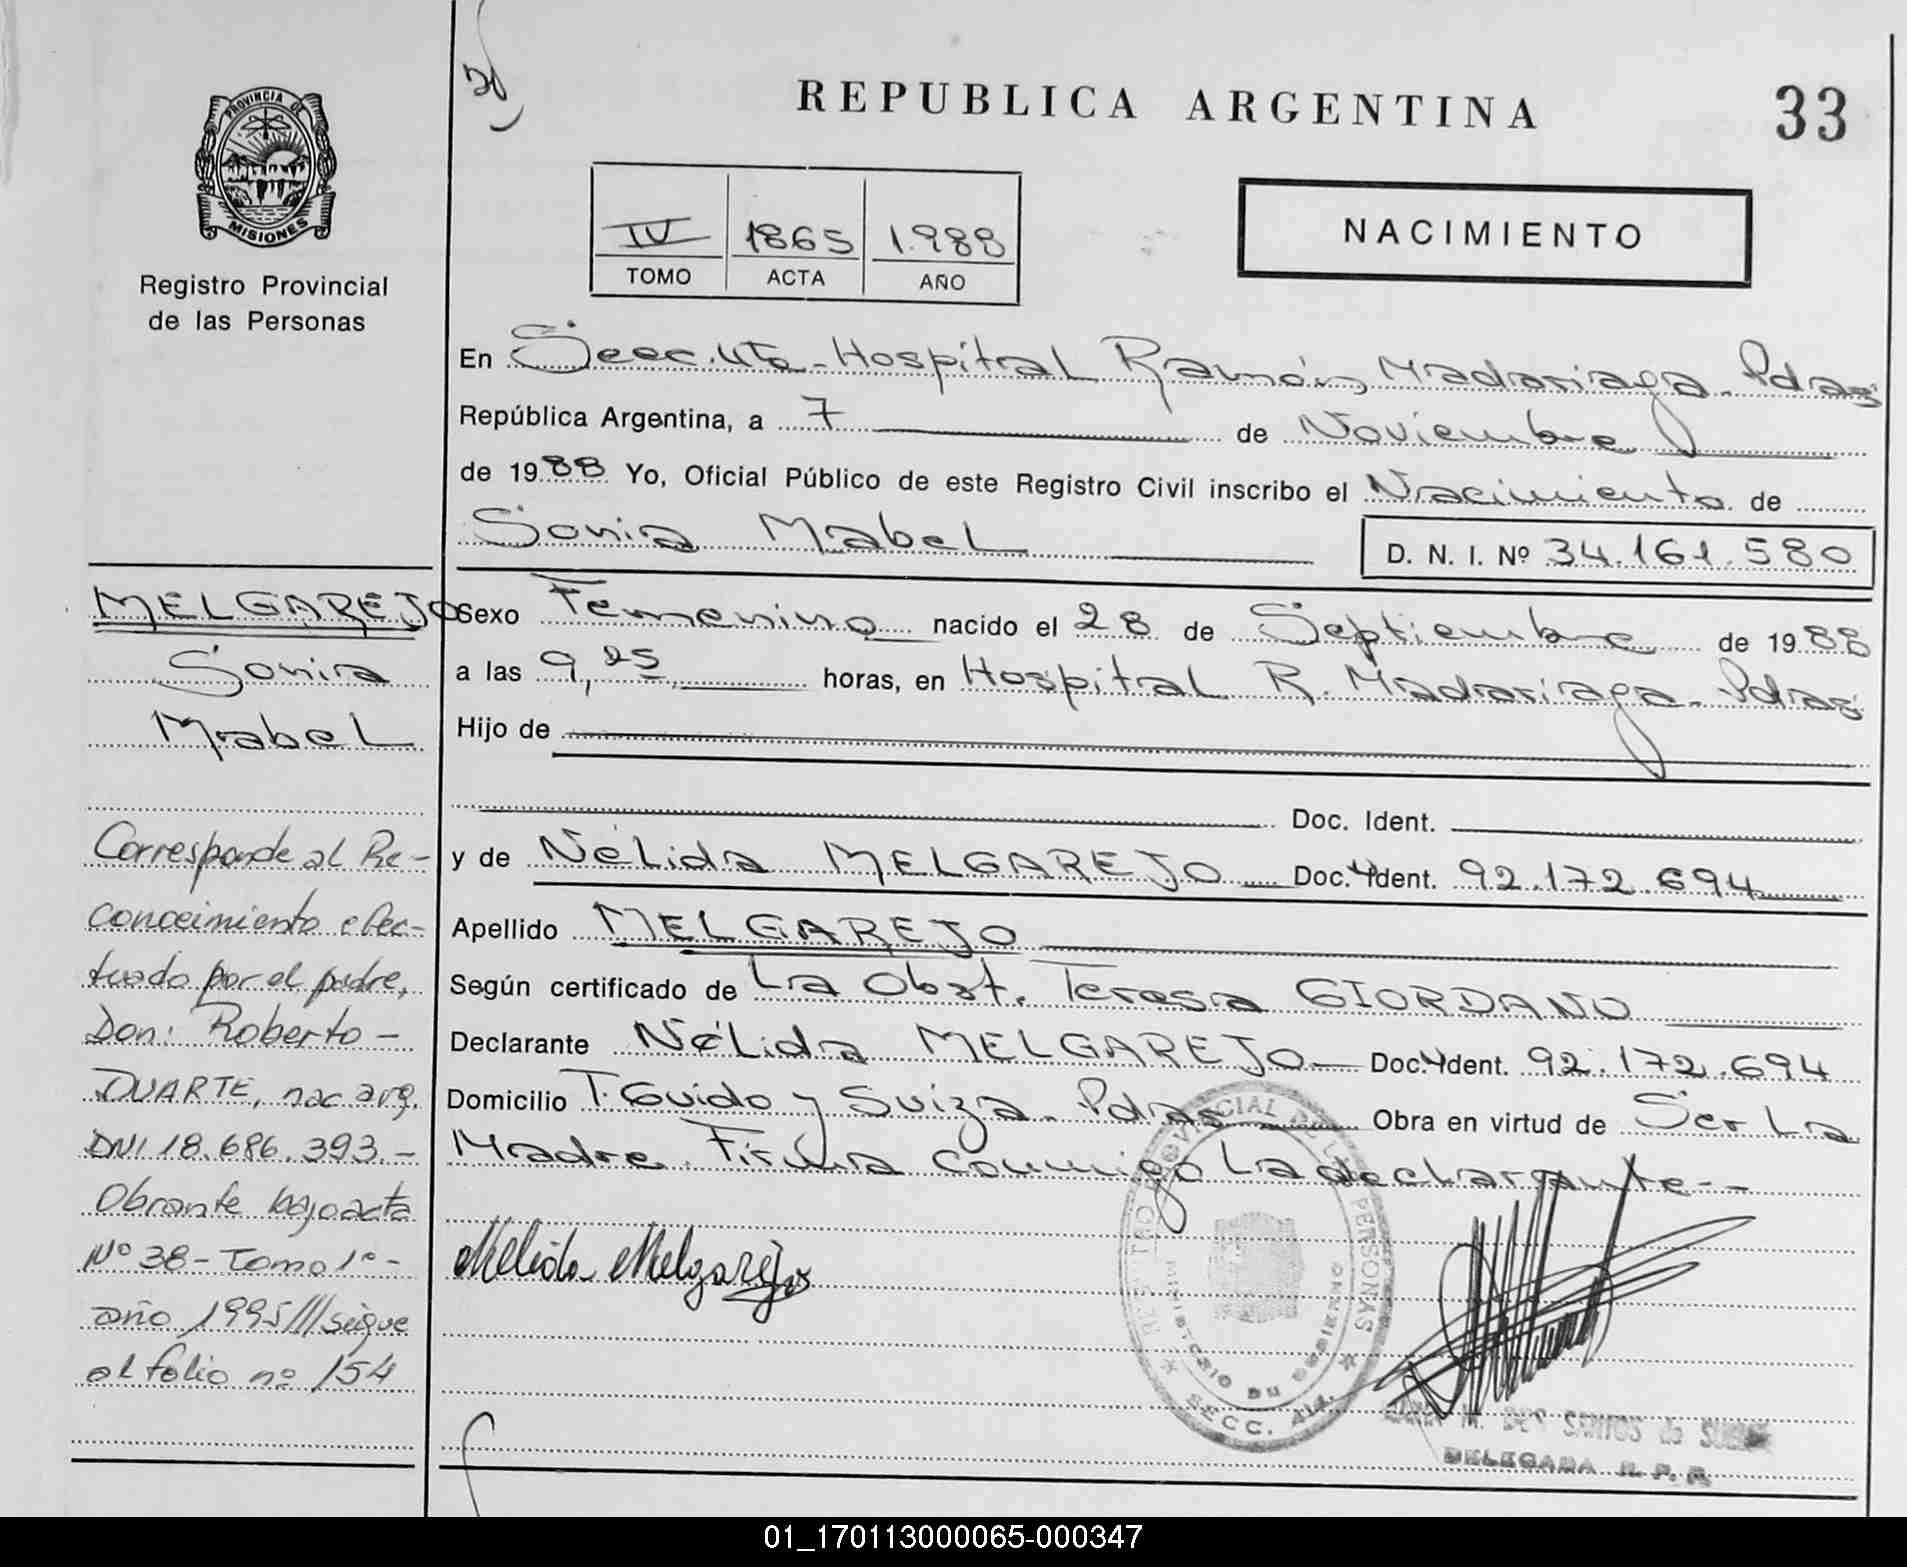 REPUBLICA ARGENTINA
33
PROVINCIA DE
MISIONES
Registro Provincial
de las Personas
IV 1865 1.988
TOMO ACTA AÑO
NACIMIENTO
En Secc. 4ta - Hospital Ramón Madariaga - Pdas
República Argentina, a 7 de Noviembre
de 1988 Yo, Oficial Público de este Registro Civil inscribo el Nacimiento de
Sonia Mabel D. N. I. Nº 34.161.580
Sexo Femenino nacido el 28 de Septiembre de 1988
a las 9,25 horas, en Hospital R. Madariaga - Pdas
Hijo de
Doc. Ident.
y de Nélida MELGAREJO Doc. Ident. 92.172.694
Apellido MELGAREJO
Según certificado de La Obst. Teresa GIORDANO
Declarante Nélida MELGAREJO - Doc. Ident. 92.172.694
Domicilio T. Guido y Suiza - Pdas Obra en virtud de Ser La
Madre. Firma conmigo La declarante --
Nelida Melgarejo
MELGAREJO
Sonia
Mabel
Corresponde al Re-
conocimiento efec-
tuado por el padre,
Don: Roberto -
DUARTE, nac arg.
DNI 18.686.393.-
Obrante bajo acta
Nº 38 - Tomo 1º -
año 1995///sigue
al folio nº 154
REGISTRO PROVINCIAL DE LAS PERSONAS
MINISTERIO DE GOBIERNO
SECC. 4ta.
M. DOS SANTOS de
DELEGADA R. P. P.
01_170113000065-000347